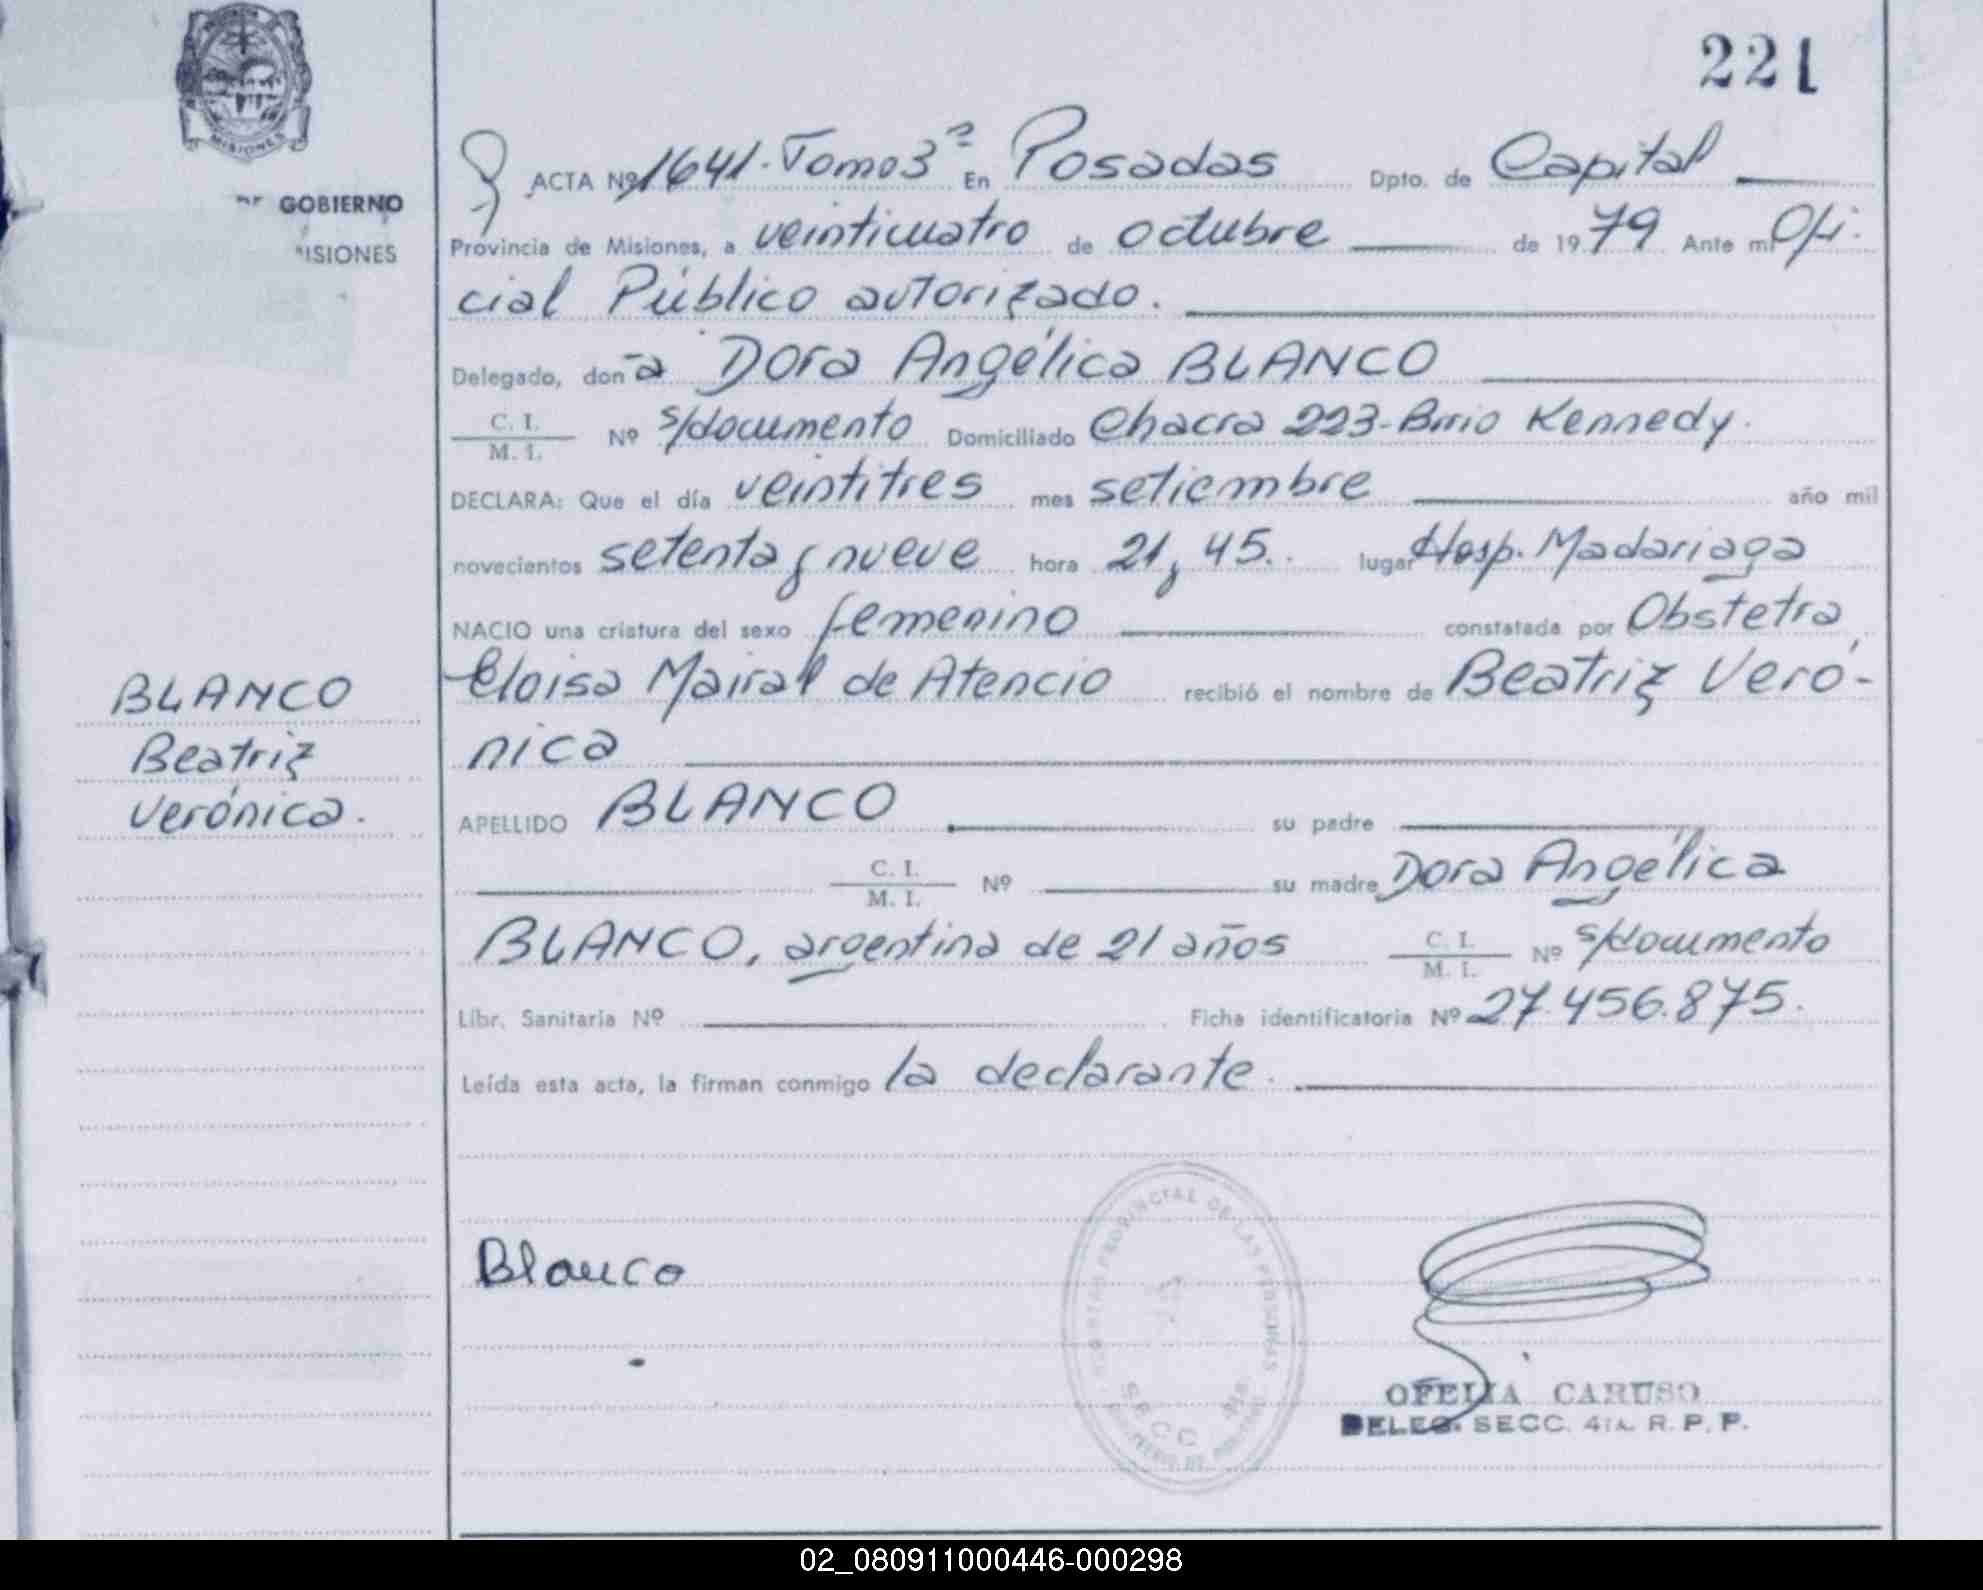 221
MISIONES
GOBIERNO
ISIONES
ACTA Nº 1641. Tomo 3º En Posadas Dpto. de Capital
Provincia de Misiones, a veinticuatro de octubre de 1979 Ante mi Ofi-
cial Público autorizado.
Delegado, don ña Dora Angélica BLANCO
C. I.
M. I.
Nº s/documento Domiciliado Chacra 223-Brrio Kennedy.
DECLARA: Que el día veintitres mes setiembre año mil
novecientos setenta y nueve hora 21, 45. lugar Hosp. Madariaga
NACIO una criatura del sexo femenino constatada por Obstetra
Eloisa Mairal de Atencio recibió el nombre de Beatriz Veró-
nica
BLANCO
Beatriz
Verónica.
APELLIDO BLANCO su padre
C. I.
M. I.
Nº su madre Dora Angélica
BLANCO, argentina de 21 años C. I.
M. I.
Nº s/documento
Libr. Sanitaria Nº Ficha identificatoria Nº 27.456.875.
Leída esta acta, la firman conmigo la declarante.
Blanco
PROVINCIAL DE LAS PERSONAS
OFELIA CARUSO
DELEG. SECC. 4ta. R. P. P.
02_080911000446-000298